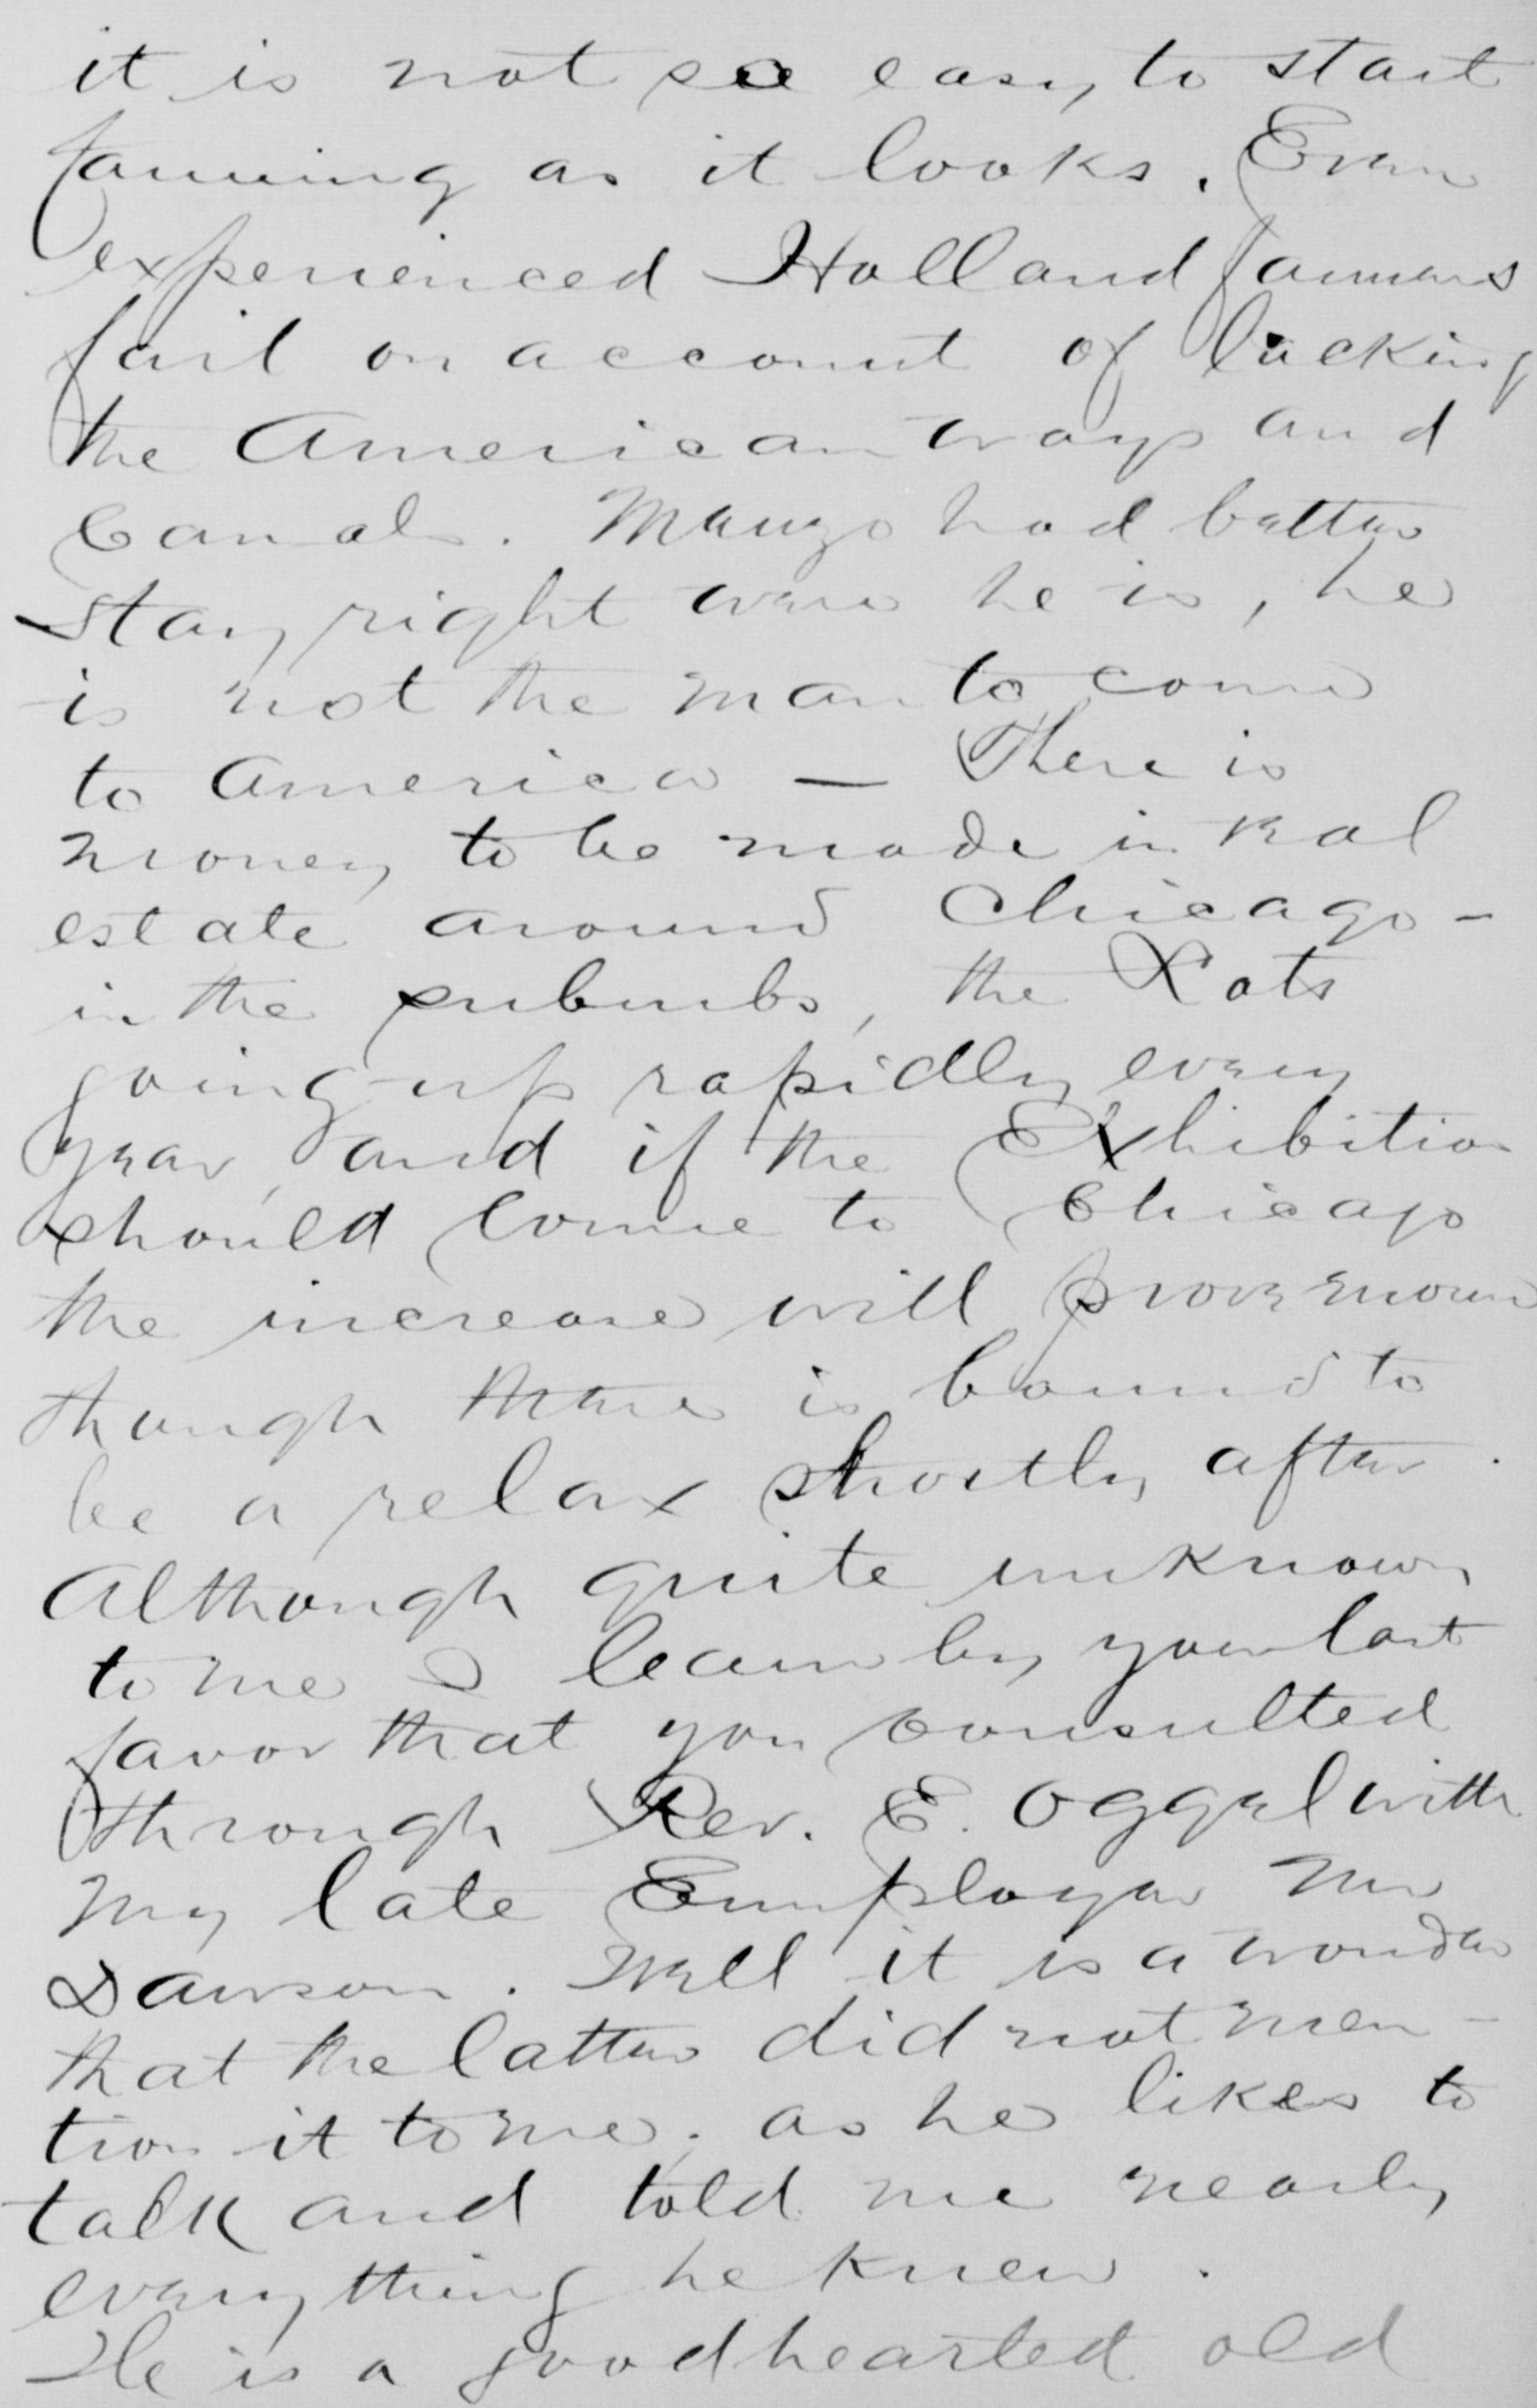 it is not so easy to start
farming as it looks. Even
experienced Holland farmers
fail on account of lacking
the American ways and
Canals. Menzo had better
stay right were he is, he
is not the man to come
to America — There is
money to be made in real
estate around Chicago -
in the suburbs, the Lots
going up rapidly every
year, and if the Exhibition
should come to Chicago
the increase will prove more
though there is bound to
be a relax shortly after.
Although quite unknown
to me I learn by your last
favor that you consulted
through Rev. E. Oggel with
my late Employer Mr
Dawson. Well it is a wonder
that the latter did not men-
tion it to me, as he likes to
talk and told me nearly
everything he knew.
He is a goodhearted old